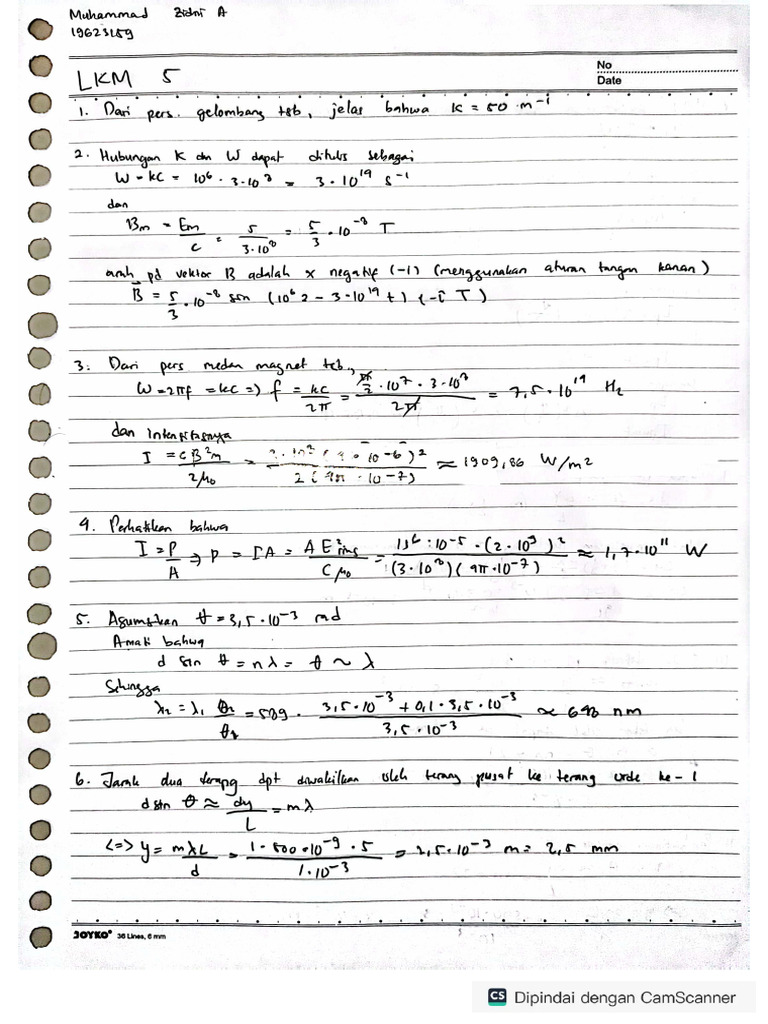 Muhammad Zidni A
19623159
No
Date
LKM 5
1. Dari pers. gelombang tsb, jelas bahwa K = 50 m⁻¹
2. Hubungan K dn W dapat ditulis sebagai
W = kC = 10⁶ · 3·10⁸ = 3·10¹⁹ s⁻¹
dan
Bm = Em/C = 5/3·10⁸ = 5/3 · 10⁻⁸ T
arah pd vektor B adalah x negatif (-i) (menggunakan aturan tangan kanan)
B = 5/3 · 10⁻⁸ sin (10⁶ z - 3·10¹⁹ t) (-î T)
3. Dari pers medan magnet tsb,
W = 2πf = kC => f = kC/2π = π/2 · 10⁷ · 3·10⁸ / 2π = 7,5·10¹⁹ Hz
dan intensitasnya
I = CB²m/2μ₀ = (4·10⁻⁶)²/2(4π·10⁻⁷) ≈ 1909,86 W/m²
4. Perhatikan bahwa
I = P/A → P = IA = A E²rms/Cμ₀ = 10⁻⁵ · (2·10⁹)²/(3·10⁸)(4π·10⁻⁷) ≈ 1,7·10¹¹ W
5. Asumsikan θ = 3,5·10⁻³ rad
Amati bahwa
d sin θ = nλ = θ ~ λ
Sehingga
λ₂ = λ₁ θ₂/θ₁ = 589 · 3,5·10⁻³ + 0,1·3,5·10⁻³ / 3,5·10⁻³ ≈ 648 nm
6. Jarak dua terang dpt diwakilkan oleh terang pusat ke terang orde ke-1
d sin θ ≈ dy/L = mλ
<=> y = mλL/d = 1·500·10⁻⁹·5/1·10⁻³ = 2,5·10⁻³ m = 2,5 mm
JOYKO® 36 Lines, 6 mm
CS Dipindai dengan CamScanner